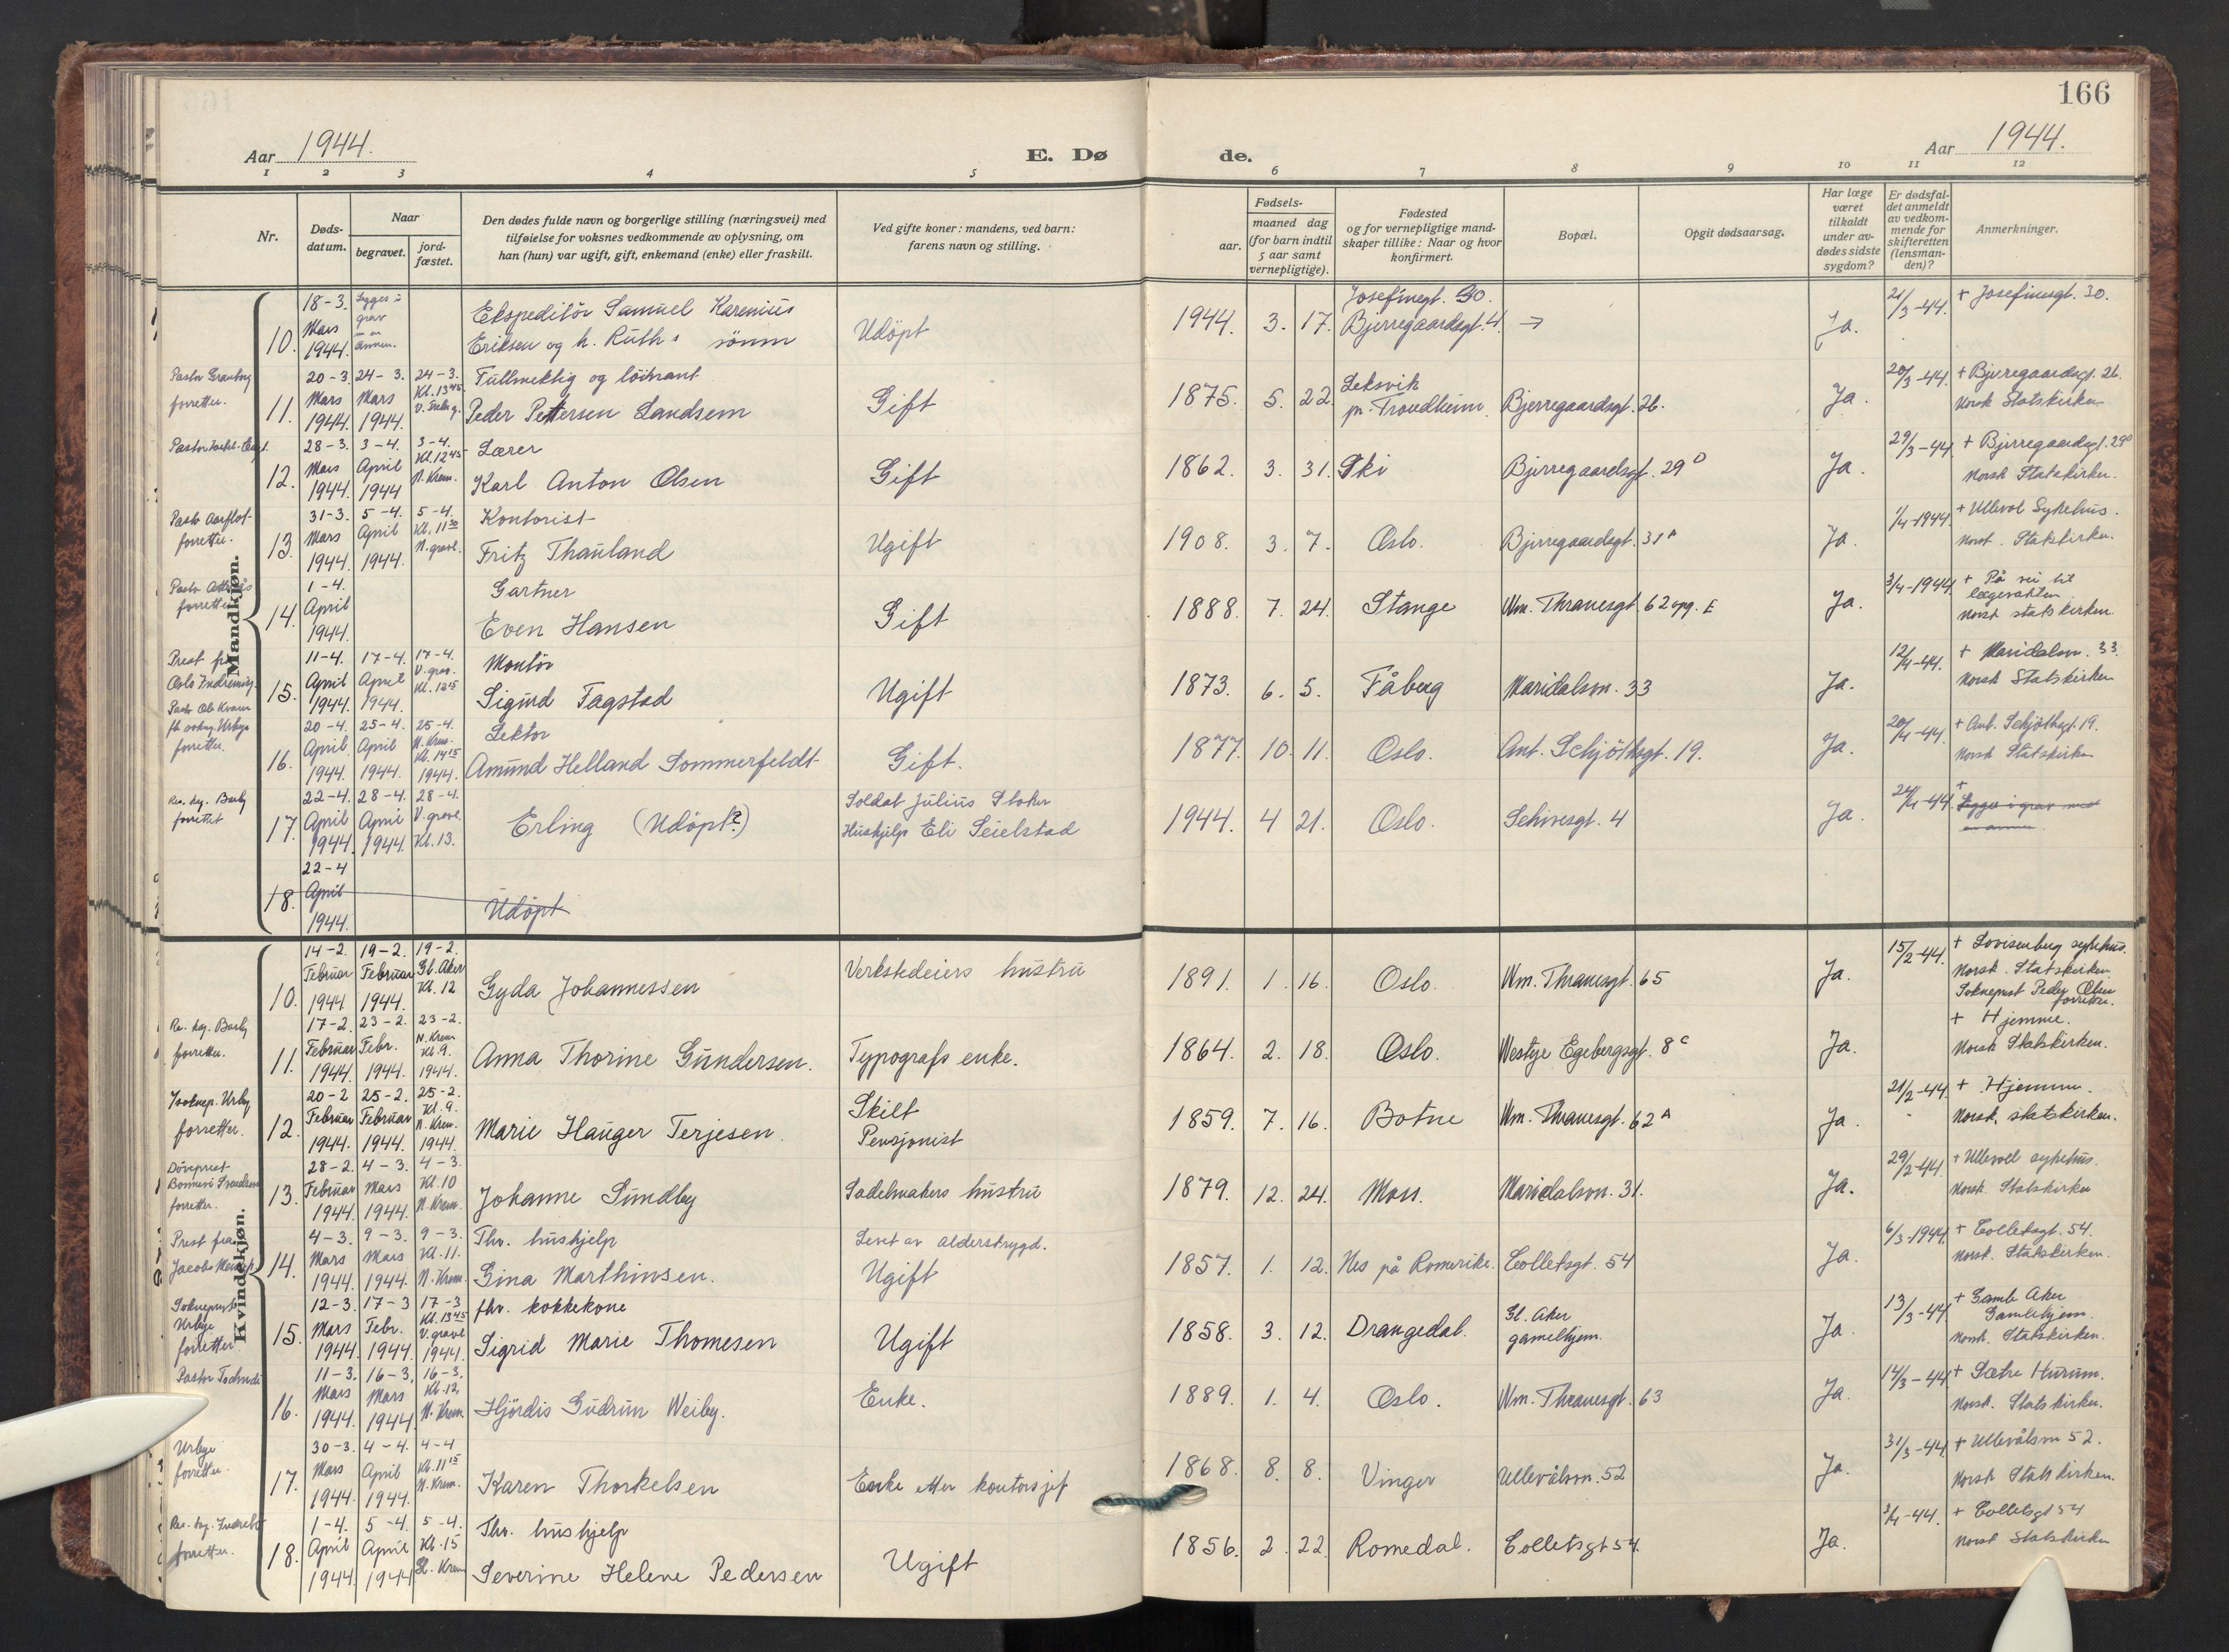 166
Aar 1944.
E. Dø
de.
Aar 1944.
1 2 3 4 5 6 7 8 9 10 11 12
Nr.
Døds-
datum.
Naar
begravet.
jord-
fæstet.
Den dødes fulde navn og borgerlige stilling (næringsvei) med
tilføielse for voksnes vedkommende av oplysning, om
han (hun) var ugift, gift, enkemand (enke) eller fraskilt.
Ved gifte koner: mandens, ved barn:
farens navn og stilling.
Fødsels-
aar.
maaned dag
(for barn indtil
5 aar samt
vernepligtige).
Fødested
og for vernepligtige mand-
skaper tillike: Naar og hvor
konfirmert.
Bopæl.
Opgit dødsaarsag.
Har læge
været
tilkaldt
under av-
dødes sidste
sygdom?
Er dødsfal-
det anmeldt
av vedkom-
mende for
skifteretten
(lensman-
den)?
Anmerkninger.
Mandkjøn.
10. 18-3. Mars 1944. Legges i grav annen.
Ekspeditør Samuel Karenius
Eriksen og h. Ruth s sønn
Udöpt
1944. 3. 17. Josefinegt. 30.
Bjerregaardsgt. 4. → Ja. 21/3-44. + Josefinesgt. 30.
forretter.
11. 20-3. Mars 1944. 24-3. Mars 1944. 24-3. Kl. 13 45
Fullmektig og löitnant
Peder Pettersen Landsem
Gift
1875. 5. 22. Leksvik
pr. Trondheim. Bjerregaardsgt. 26. Ja 20/3-44. + Bjerregaardsgt. 26.
Norsk Statskirken
12. 28-3. Mars 1944. 3-4. April 1944 3-4. Kl. 12 45 N. Krem.
Lærer
Karl Anton Olsen
Gift
1862. 3. 31. Ski Bjerregaardsgt. 29 D Ja 29/3-44. + Bjerregaardsgt. 29 D
Norsk Statskirken.
Pastor Aarflot
forretter.
13. 31-3. Mars 1944. 5-4. April 1944. 5-4. Kl. 11 30 N. gravl.
Kontorist
Fritz Thauland
Ugift
1908. 3. 7. Oslo. Bjerregaardsgt. 31 A Ja. 1/4-1944. + Ullevål Sykehus.
Norsk Statskirken.
forretter
14. 1-4. April 1944.
Gartner
Even Hansen
Gift
1888. 7. 24. Stange Wm. Thranesgt. 62 opg. E Ja. 3/4-1944. + På vei til
lægevakten.
Norsk statskirken.
Prest fra
Oslo Indremisj.
15. 11-4. April 1944. 17-4. April 1944. 17-4. V. grav. Kl. 12 15
Montör
Sigurd Fagstad
Ugift
1873. 6. 5. Fåberg Maridalsvn. 33 Ja. 12/4-44. + Maridalsvn. 33.
Norsk Statskirken
forretter.
16. 20-4. April 1944. 25-4. April 1944. 25-4. N. Krem. Kl. 14 15 1944.
Lektor
Amund Helland Sommerfeldt
Gift.
1877. 10. 11. Oslo. Ant. Schjöthsgt. 19. Ja. 20/4-44. + Ant. Schjöthsgt. 19.
Norsk Statskirken
Res. kap. Barly
forrettet
17. 22-4. April 1944. 28-4. April 1944. 28-4. V. gravl. Kl. 13.
Erling (Udöpt?)
Soldat Julius Stoker
Hushjelp Eli Seielstad
1944. 4 21. Oslo. Schivesgt. 4 Ja. 24/4-44. +
Legges i grav med
en annen.
18. 22-4 April 1944.
Udöpt
Kvindekjøn.
10. 14-2. Februar 1944. 19-2. Februar 1944. 19-2. Gl. Aker Kl. 12
Gyda Johannessen
Verkstedeiers hustru
1891. 1. 16. Oslo. Wm. Thranesgt. 65 Ja. 15/2-44. + Lovisenberg sykehus.
Norsk Statskirken.
Sokneprest Peder Olsen
forretter.
Res. kap. Barly
forretter.
11. 17-2. Februar 1944. 23-2. Febr. 1944. 23-2. N. Krem Kl. 9. 1944.
Anna Thorine Gundersen.
Typografs enke.
1864. 2. 18. Oslo. Westye Egebergsgt. 8 C Ja. + Hjemme.
Norsk Statskirken.
Soknep. Urby
forretter.
12. 20-2 Februar 1944. 25-2. Februar 1944. 25-2. Kl. 9. N. Krem. 1944.
Marie Hauger Terjesen.
Skilt
Pensjonist
1859. 7. 16. Botne Wm. Thranesgt. 62 A Ja. 21/2-44. + Hjemme.
Norsk. statskirken.
Döveprest
forretter.
13. 28-2. Februar 1944. 4-3. Mars 1944. 4-3. Kl. 10 N. Krem.
Johanne Sundby
Sadelmakers hustru
1879. 12. 24. Moss. Maridalsvn. 31. Ja. 29/2-44. + Ullevål sykehus.
Norsk. Statskirken
Prest fra
Jacobs
14. 4-3. Mars 1944. 9-3. Mars 1944. 9-3. Kl. 11. N. Krem.
Thv. hushjelp
Gina Marthinsen.
Levet av alderstrygd.
Ugift
1857. 1. 12. Nes på Romerike. Colletsgt. 54 Ja. 6/3-1944. + Colletsgt. 54.
Norsk. Statskirken.
Sokneprest
Urbye
forretter.
15. 12-3. Mars 1944. 17-3 Febr. 1944. 17-3 Kl. 13 45 V. gravl 1944.
fhv. kokkekone
Sigrid Marie Thomesen
Ugift
1858. 3. 12. Drangedal. Gl. Aker
gamlehjem. Ja. 13/3-44. + Gamle Aker
Gamlehjem.
Norsk. Statskirken.
16. 11-3. Mars 1944. 16-3. Mars 1944. 16-3. Kl. 12. N. Krem.
Hjördis Gudrun Weiby.
Enke.
1889. 1. 4. Oslo. Wm. Thranesgt. 63 Ja. 14/3-44. + Sætre Hurum.
Norsk. Statskirken.
Urbye
forretter.
17. 30-3. Mars 1944. 4-4. April 1944. 4-4 Kl. 11 15 N. Krem.
Karen Thorkelsen
Enke etter kontorsjef
1868. 8. 8. Vinger Ullevålsvn. 52 Ja. 31/3-44. + Ullevålsvn 52.
Norsk Statskirken.
forretter.
18. 1-4. April 1944. 5-4. April 1944 5-4. Kl. 15
Thv. hushjelp
Severine Helene Pedersen
Ugift
1856. 2. 22. Romedal. Colletsgt 54. Ja. 3/4-44. + Colletsgt 54
Norsk Statskirken